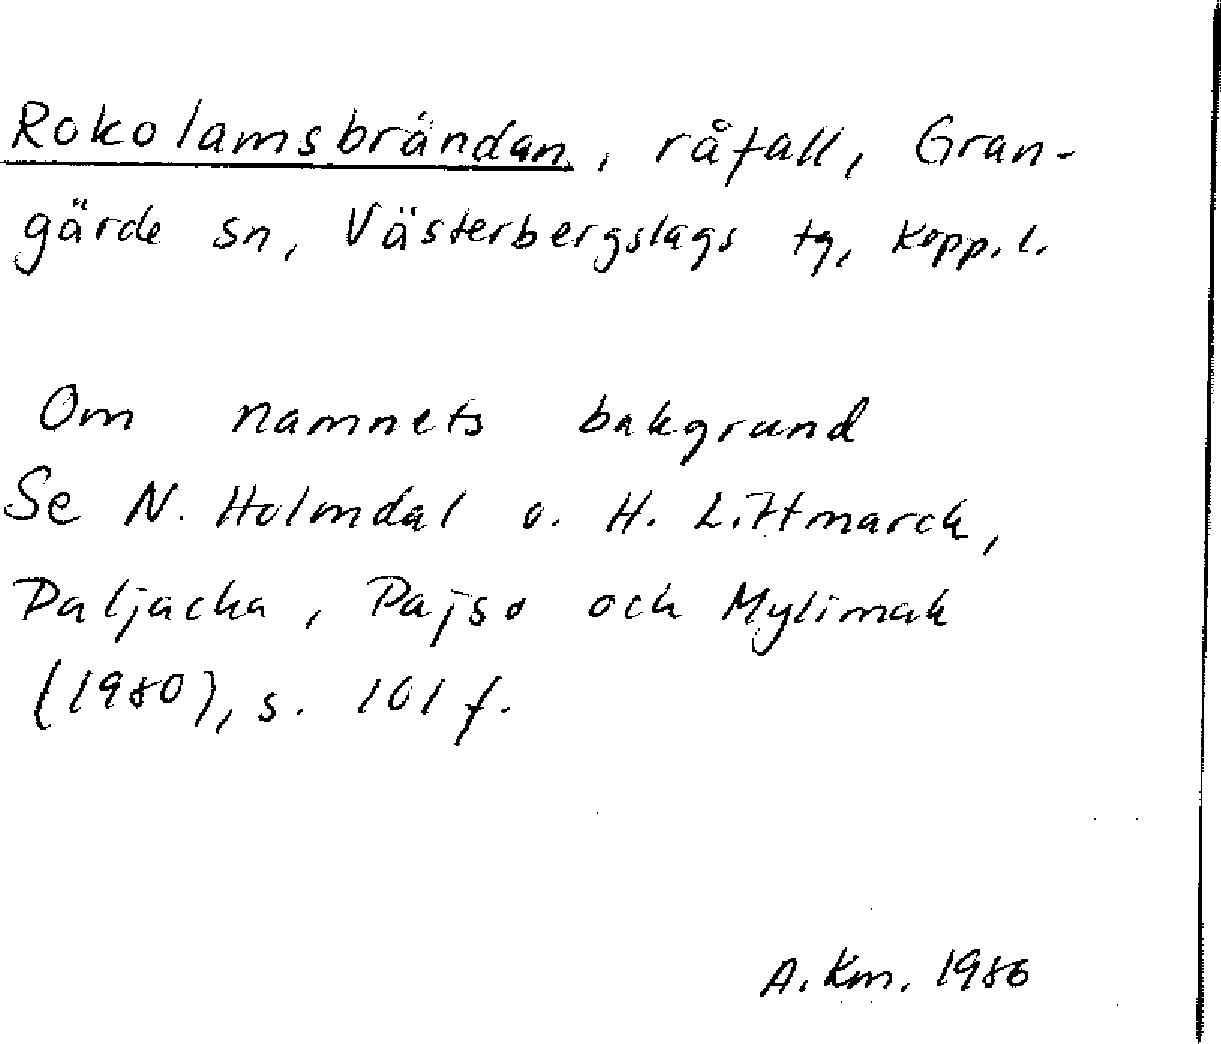 Rokolamsbrändan, råfall, Gran-
gärde sn, Västerbergslags tg, Kopp. l.
Om namnets bakgrund
Se N. Holmdal o. H. Littmarck,
Daljacka, Pajso och Mylimak
(1980), s. 101 f.
A. Km. 1986